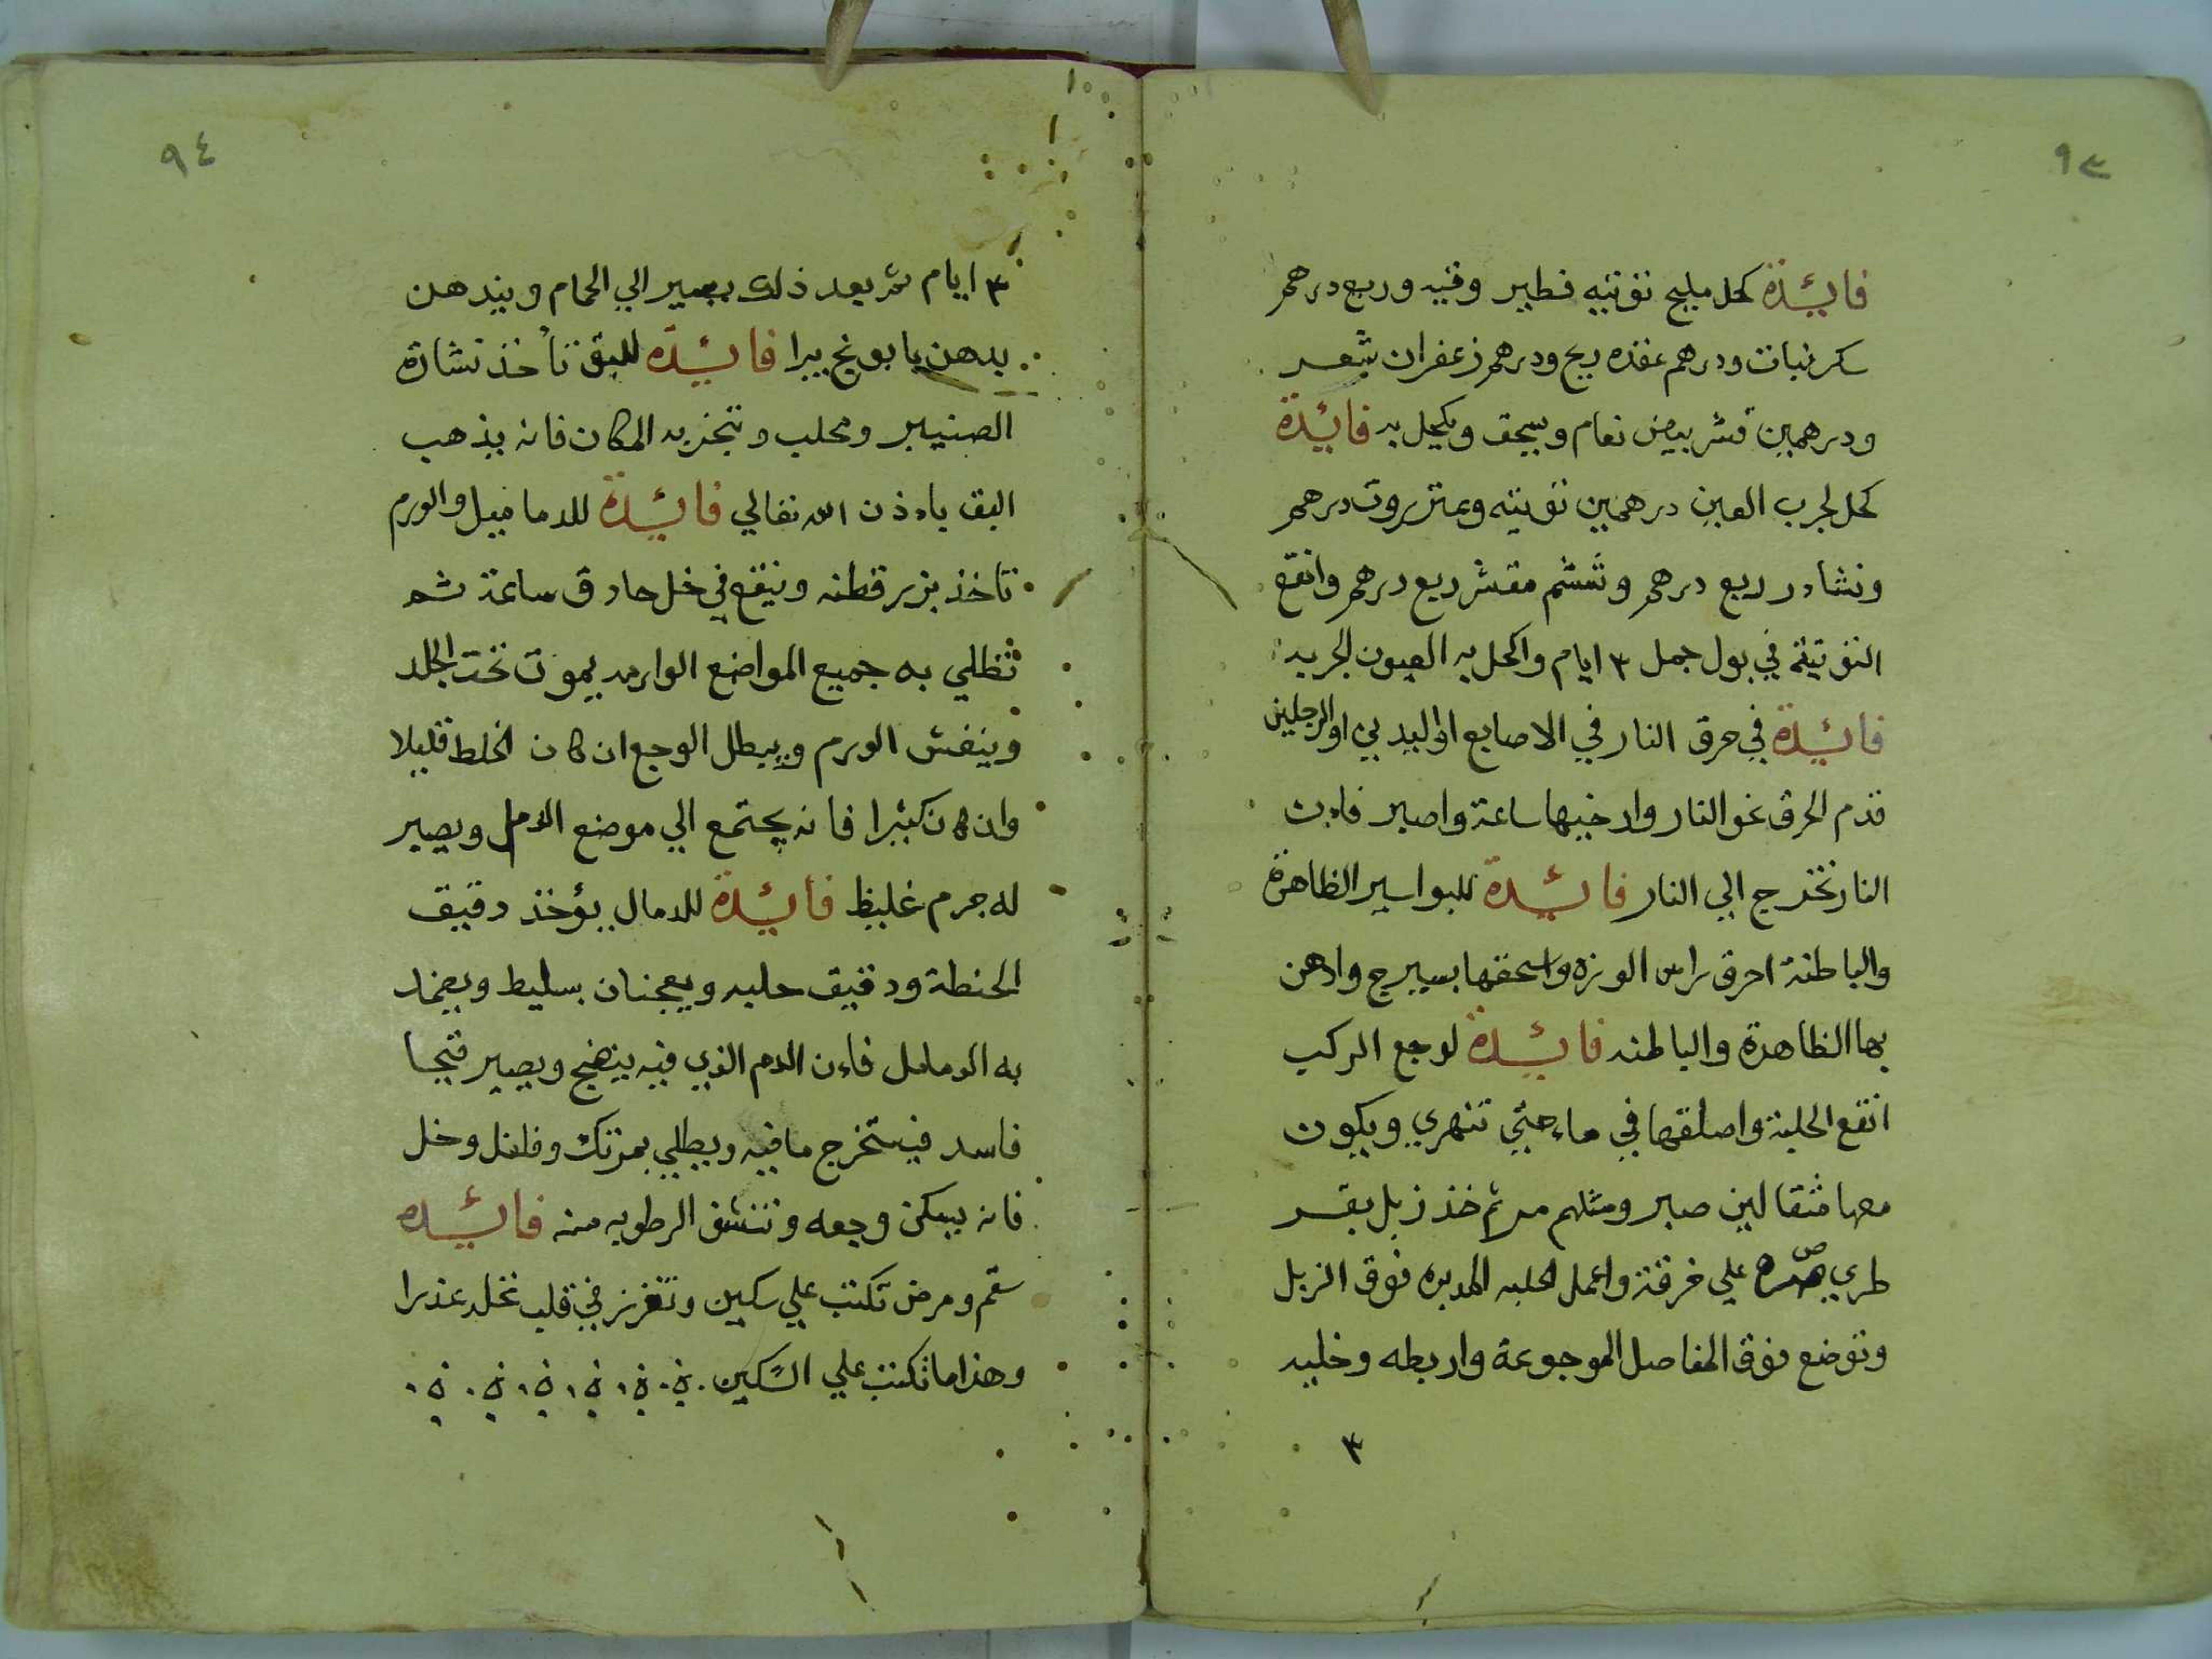 ٩٣
فائدة كحل مليح توتيه فطير وقيه وربع درهم
سكر نبات ودرهم عقده ريح ودرهم زعفران شعر
ودرهمين قشر بيض نعام ويسحق ويكحل به فائدة
كحل لجرب العين درهمين توتيه وعنزروت درهم
ونشادر ربع درهم وششم مقشر ربع درهم وانقع
التوتية في بول جمل ٣ ايام واكحل به العيون الجربه
فائدة في حرق النار في الاصابع او اليدين او الرجلين
قدم الحرق نحو النار وارخيها ساعة واصبر فاءن
النار تخرج الي النار فائدة للبواسير الظاهرة
والباطنة احرق راس الوزه واسحقها بسيرج وادهن
بها الظاهرة والباطنه فائدة لوجع الركب
انقع الحلبة واصلقها في ماء حتي تنهري ويكون
معها مثقالين صبر ومثلهم مر ثم خذ زبل بقر
طري علي خرقة واعمل الحلبه المدبره فوق الزبل
وتوضع فوق المفاصل الموجوعة واربطه وخليه
٣
٩٤
٣ ايام ثم بعد ذلك يصير الي الحمام ويندهن
بدهن بابونج يبرا فائده للبق تأخذ نشارة
الصنيبر ومحلب وتبخر به المكان فانه يذهب
البق باءذن الله تعالي فائدة للدماميل والورم
تاخذ بزر قطنه وينقع في خل حاذق ساعة ثم
تطلي به جميع المواضع الوارمه يموت تحت الجلد
وينفش الورم ويبطل الوجع ان كان الخلط قليلا
وان كان كثيرا فانه يجتمع الي موضع الدمل ويصير
له جرم غليظ فائدة للدمال يؤخذ دقيق
الحنطة ودقيق حلبه ويعجنان بسليط ويضماد
به الدمامل فاءن الدم الذي فيه ينضج ويصير قيحا
فاسد فيستخرج ما فيه ويطلي بمرتك وفلفل وخل
فانه يسكن وجعه وتنشف الرطوبه منه فائده
سقم ومرض تكتب علي سكين وتغرز في قلب نخله عذرا
وهذا ما تكتب علي السكين